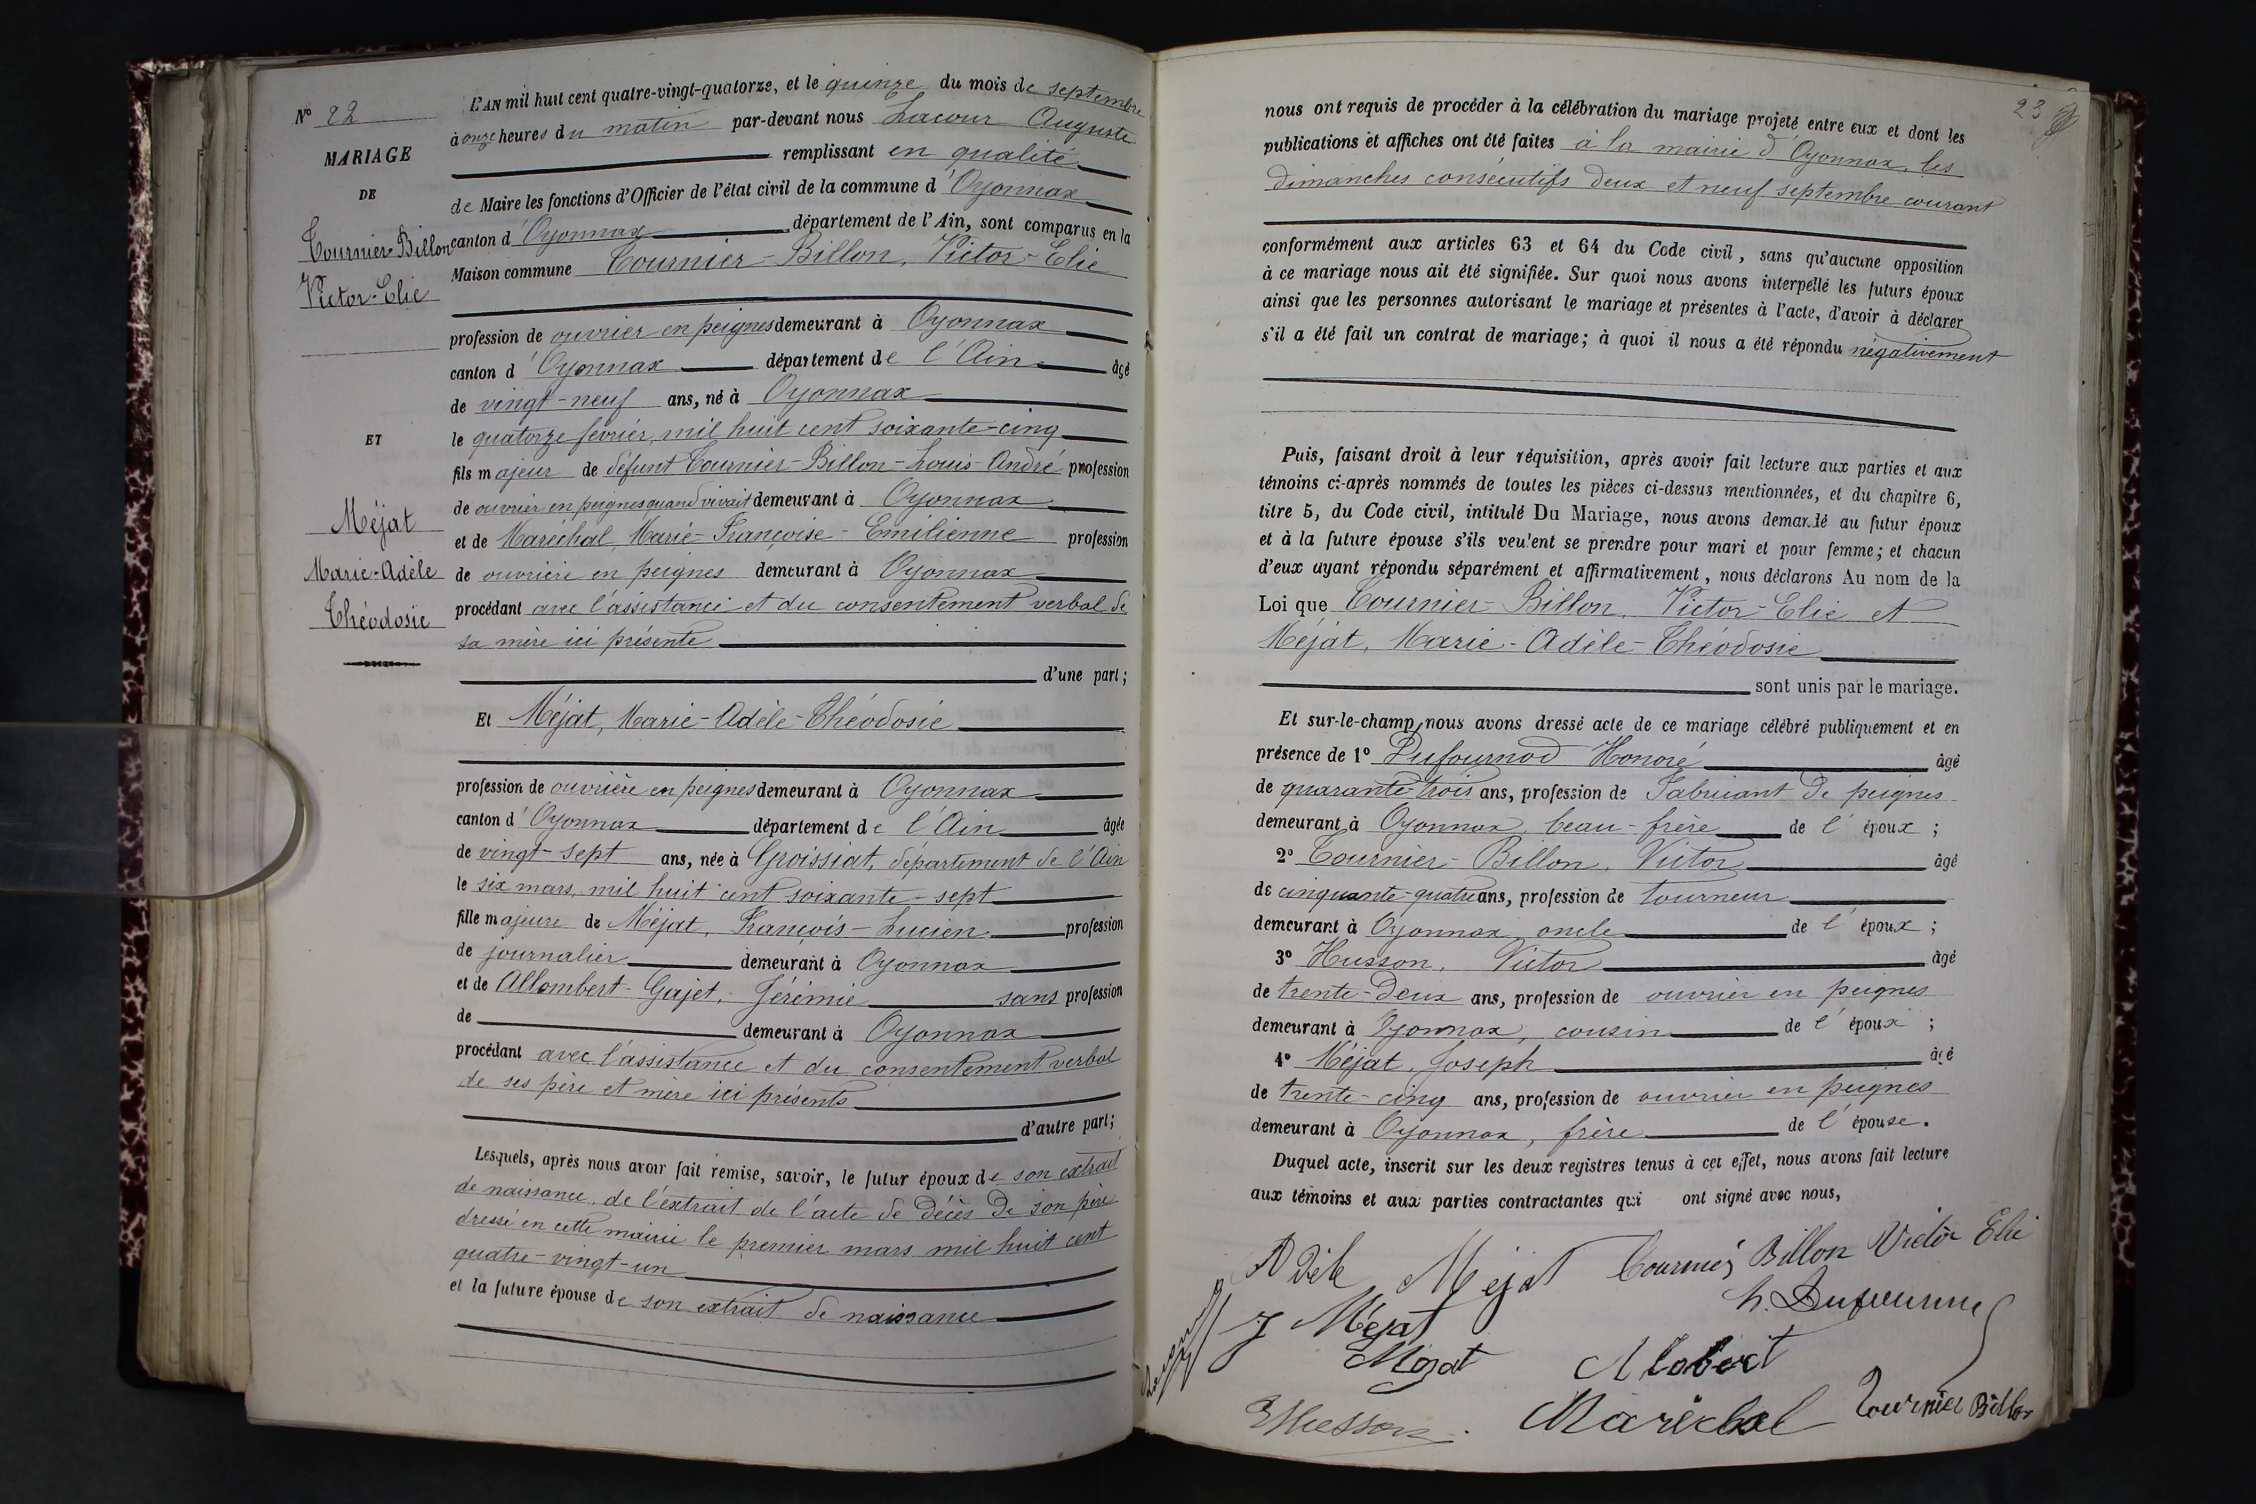 N° 22
MARIAGE
DE
Tournier-Billon
Victor-Elie
ET
Méjat
Marie-Adèle
Théodosie
L'AN mil huit cent quatre-vingt-quatorze, et le quinze du mois de septembre
à onze heures du matin par-devant nous Lacour Auguste
remplissant en qualité
de Maire les fonctions d'Officier de l'état civil de la commune d'Oyonnax
canton d'Oyonnax département de l'Ain, sont comparus en la
Maison commune Tournier-Billon, Victor-Elie
profession de ouvrier en peignes demeurant à Oyonnax
canton d'Oyonnax département de l'Ain âgé
de vingt-neuf ans, né à Oyonnax
le quatorze février, mil huit cent soixante-cinq
fils majeur de défunt Tournier-Billon-Louis-André profession
de ouvrier en peignes quand vivait demeurant à Oyonnax
et de Maréchal, Marie-Françoise-Emilienne profession
de ouvrière en peignes demeurant à Oyonnax
procédant avec l'assistance et du consentement verbal de
sa mère ici présente
d'une part;
Et Méjat, Marie-Adèle-Théodosie
profession de ouvrière en peignes demeurant à Oyonnax
canton d'Oyonnax département de l'Ain âgée
de vingt-sept ans, née à Groissiat, département de l'Ain
le six mars, mil huit cent soixante-sept
fille majeure de Méjat, François-Lucien profession
de journalier demeurant à Oyonnax
et de Allombert-Gojet, Jérémie sans profession
de demeurant à Oyonnax
procédant avec l'assistance et du consentement verbal
de ses père et mère ici présents
d'autre part;
Lesquels, après nous avoir fait remise, savoir, le futur époux de son extrait
de naissance, de l'extrait de l'acte de décès de son père
dressé en cette mairie le premier mars mil huit cent
quatre-vingt-un
et la future épouse de son extrait de naissance
23
nous ont requis de procéder à la célébration du mariage projeté entre eux et dont les
publications et affiches ont été faites à la mairie d'Oyonnax, les
dimanches consécutifs deux et neuf septembre courant
conformément aux articles 63 et 64 du Code civil, sans qu'aucune opposition
à ce mariage nous ait été signifiée. Sur quoi nous avons interpellé les futurs époux
ainsi que les personnes autorisant le mariage et présentes à l'acte, d'avoir à déclarer
s'il a été fait un contrat de mariage; à quoi il nous a été répondu négativement
Puis, faisant droit à leur réquisition, après avoir fait lecture aux parties et aux
témoins ci-après nommés de toutes les pièces ci-dessus mentionnées, et du chapitre 6,
titre 5, du Code civil, intitulé Du Mariage, nous avons demandé au futur époux
et à la future épouse s'ils veulent se prendre pour mari et pour femme; et chacun
d'eux ayant répondu séparément et affirmativement, nous déclarons Au nom de la
Loi que Tournier-Billon, Victor-Elie et
Méjat, Marie-Adèle-Théodosie
sont unis par le mariage.
Et sur-le-champ, nous avons dressé acte de ce mariage célébré publiquement et en
présence de 1° Dufournod Honoré âgé
de quarante-trois ans, profession de Fabricant de peignes
demeurant à Oyonnax, beau-frère de l'époux;
2° Tournier-Billon, Victor âgé
de cinquante-quatre ans, profession de tourneur
demeurant à Oyonnax, oncle de l'époux;
3° Husson, Victor âgé
de trente-deux ans, profession de ouvrier en peignes
demeurant à Oyonnax, cousin de l'époux;
4° Méjat, Joseph âgé
de trente-cinq ans, profession de ouvrier en peignes
demeurant à Oyonnax, frère de l'épouse.
Duquel acte, inscrit sur les deux registres tenus à cet effet, nous avons fait lecture
aux témoins et aux parties contractantes qui ont signé avec nous,
Adèle Mejat Tournier Billon Victor Elie
J Méjat
Mejat Alobert
VHusson Maréchal Tournier Billon